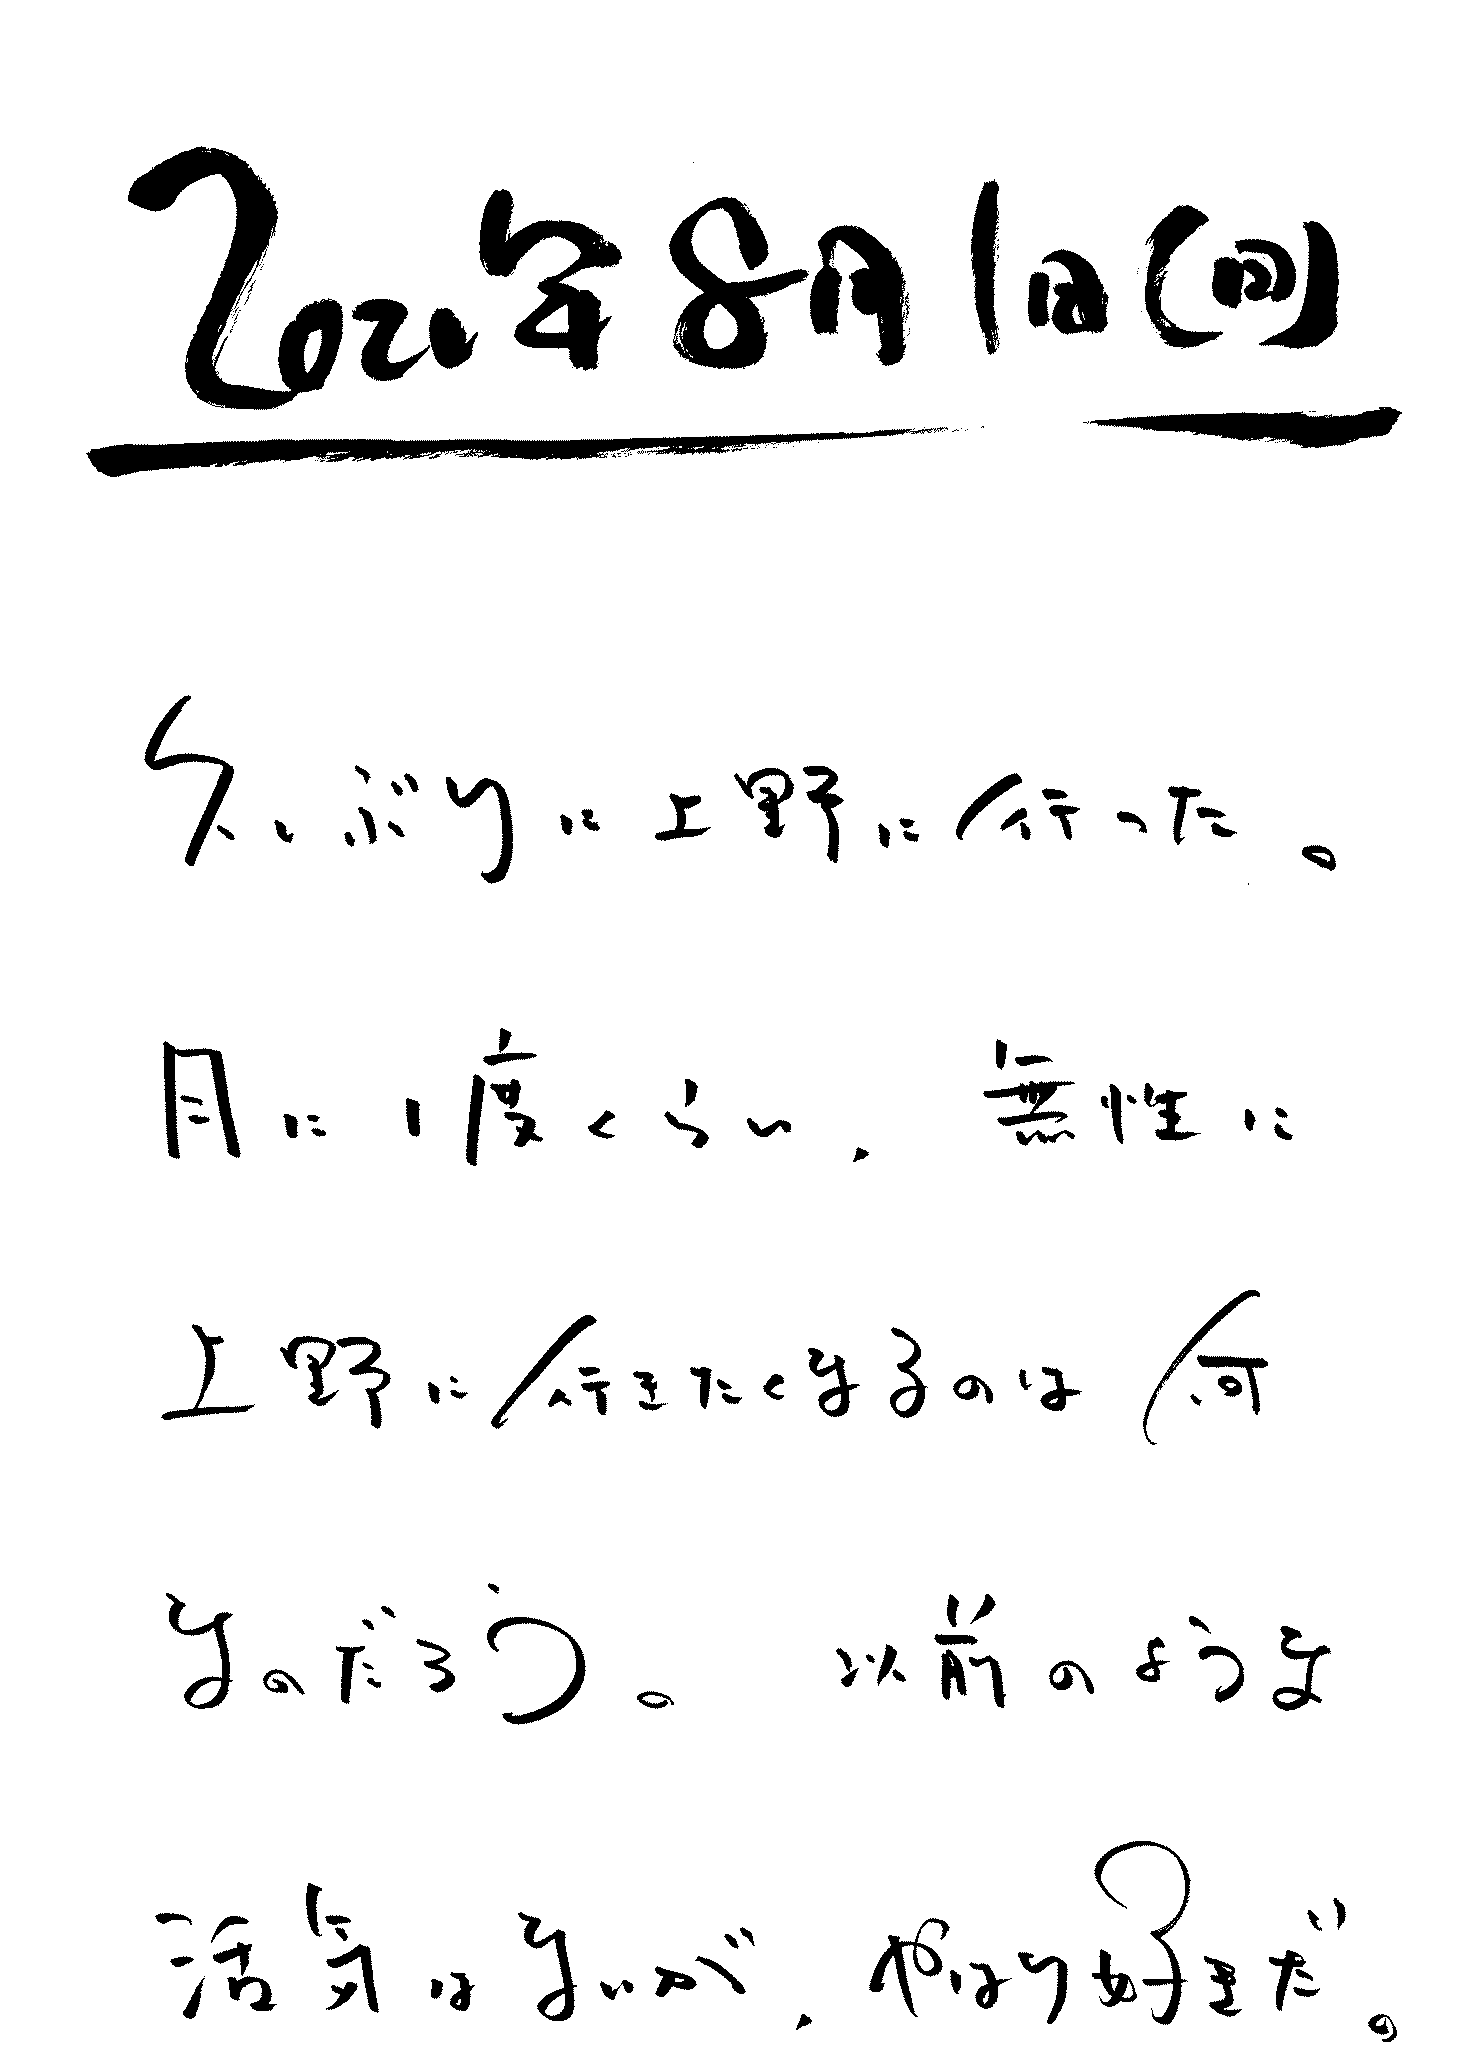 2021年8月1日(日)
久しぶりに上野に行った。
月に1度くらい、無性に
上野に行きたくなるのは何
なのだろう。以前のような
活気はないが、やはり好きだ。